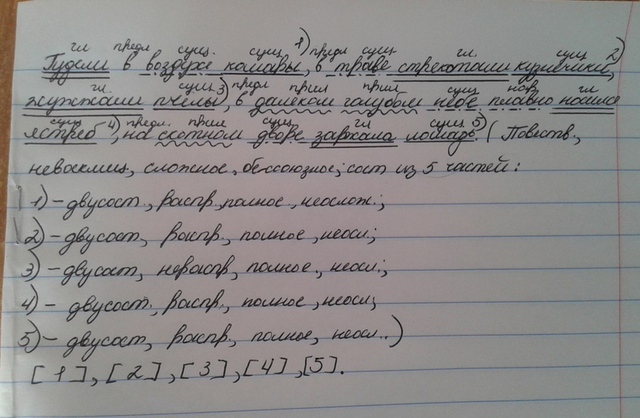 гл предл сущ. сущ 1) предл сущ гл. сущ 2)
Гудели в воздухе комары, в траве стрекотали кузнечики,
гл. сущ 3) предл прил прил сущ нар. гл
жужжали пчелы, в далеком голубом небе плавно носился
сущ 4) предл. прил сущ гл сущ 5)
ястреб, на скотном дворе заржала лошадь. (Повеств.,
невосклиц, сложное, бессоюзное; сост из 5 частей:
1) – двусост., распр., полное, неослож.;
2) – двусост, распр., полное, неосл.;
3) – двусост, нераспр, полное., неосл.;
4) – двусост. распр., полное, неосл;
5) – двусост, распр., полное, неосл..)
[1], [2], [3], [4], [5].